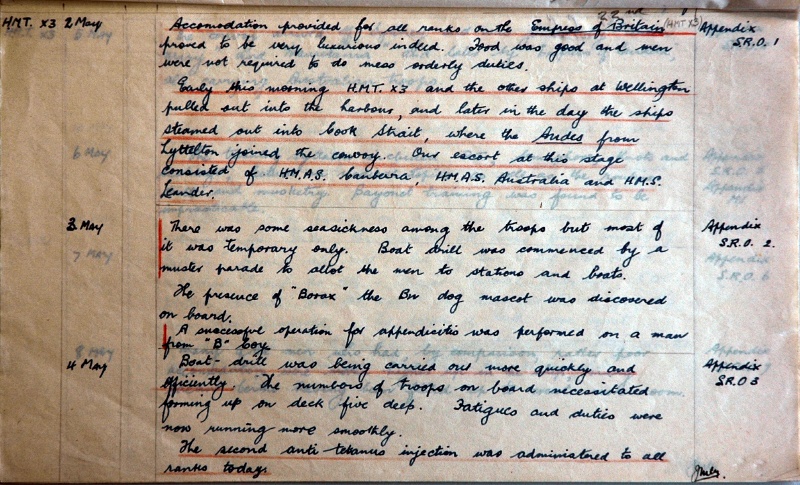 22nd
HMT. X3 2 May Accomodation provided for all ranks on the Empress of Britain (HMT X3) Appendix
proved to be very luxurious indeed. Food was good and men S.R.O. 1
were not required to do mess orderly duties.
Early this morning H.M.T. X3 and the other ships at Wellington
pulled out into the harbour, and later in the day the ships
steamed out into Cook Strait, where the Andes from
Lyttelton joined the convoy. Our escort at this stage
consisted of H.M.A.S. Canberra, H.M.A.S. Australia and H.M.S.
Leander.
3 May There was some seasickness among the troops but most of Appendix
it was temporary only. Boat drill was commenced by a S.R.O. 2.
muster parade to allot the men to stations and boats.
The presence of "Borax" the Bn dog mascot was discovered
on board.
A successful operation for appendicitis was performed on a man
from "B" Coy.
4 May Boat-drill was being carried out more quickly and Appendix
efficiently. The numbers of troops on board necessitated S.R.O 3
forming up on deck five deep. Fatigues and duties were
now running more smoothly.
The second anti tetanus injection was administered to all
ranks today.